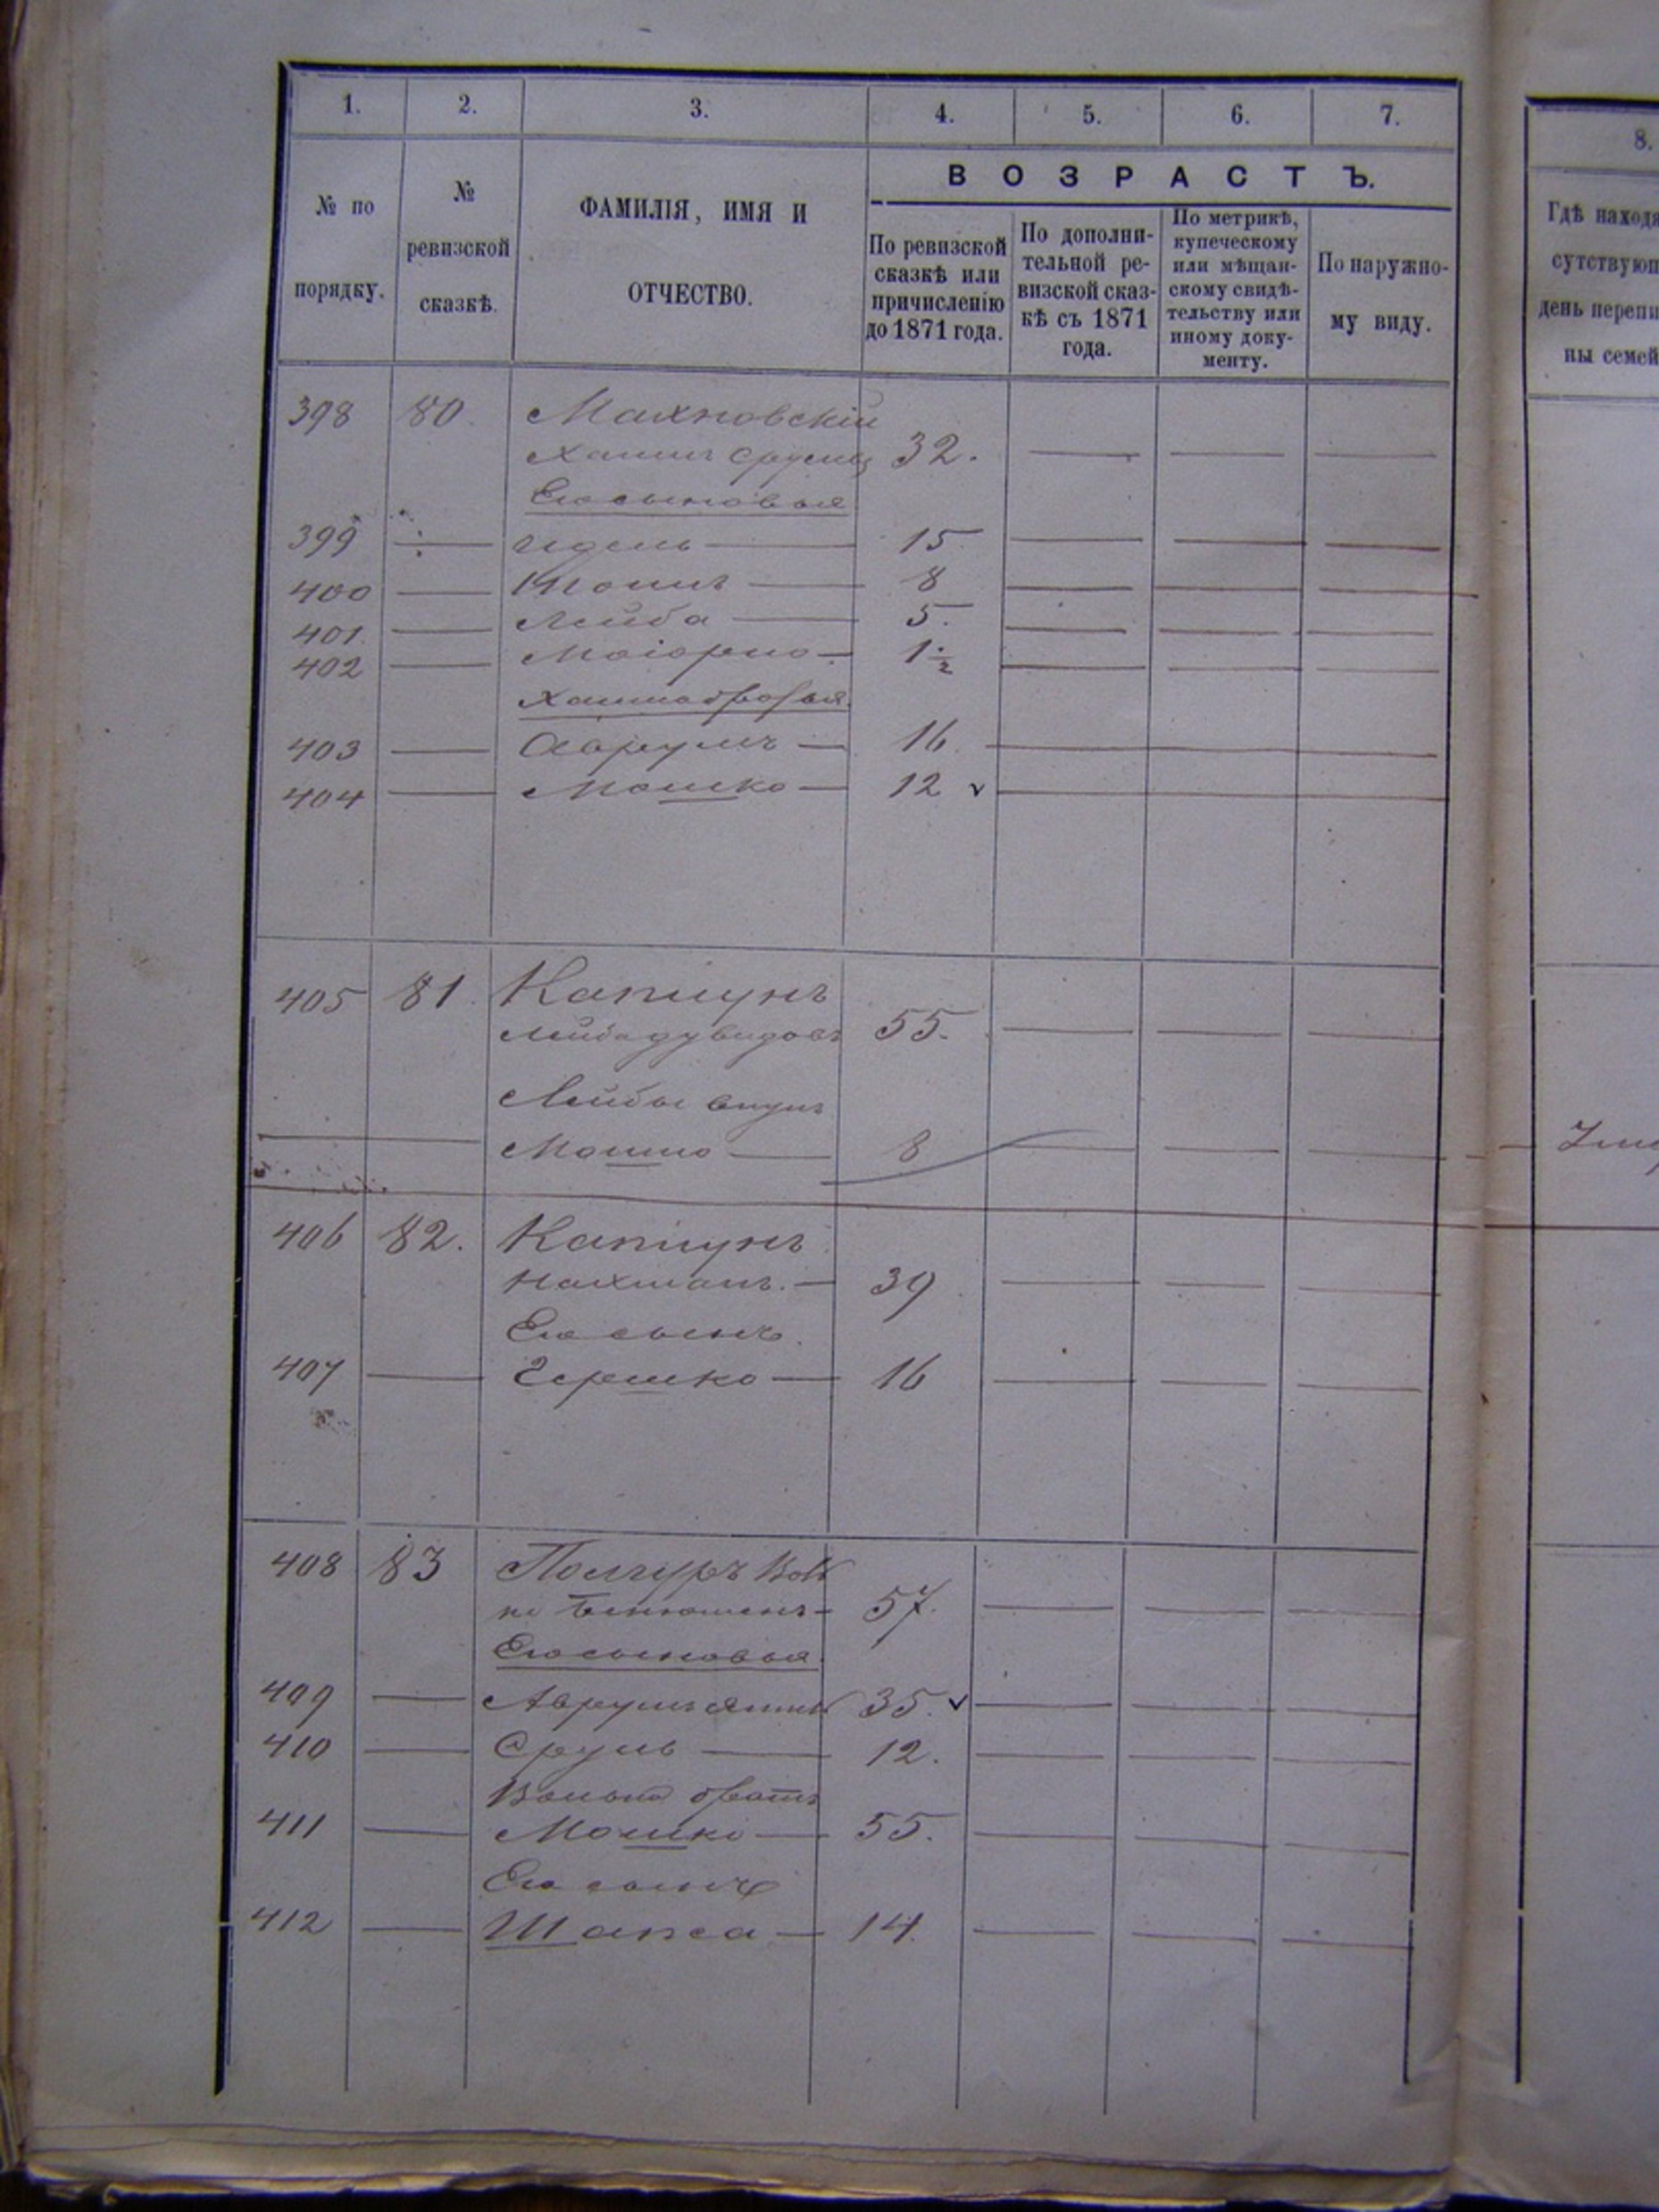 1. 2. 3. 4. 5. 6. 7.
8.
В О З Р А С Т Ъ.
№ по
порядку.
№
ревизской
сказкѣ.
ФАМИЛІЯ, ИМЯ И
ОТЧЕСТВО.
По ревизской
сказкѣ или
причисленію
до 1871 года.
По дополни-
тельной ре-
визской сказ-
кѣ съ 1871
года.
По метрикѣ,
купеческому
или мѣщан-
скому свидѣ-
тельству или
иному доку-
менту.
По наружно-
му виду.
Гдѣ наход
сутствую
день переп
ны семей
398 80. Махновскій
Хаимъ Срулев 32.
Его сыновья
399 — Идель — 15
400 — — 8
401. — Лейба — 5.
402 — — 1 1/2
Хаима братья
403 — Аврумъ — 16.
404 — Мошко — 12 ✓
405 81. Капшунъ
Лейба Дувидовъ 55.
Лейбы внукъ
— Мошко — 8
406 82. Капшунъ
Нахманъ. — 39
Его сынъ.
407 — Гершко — 16
408 83 Полгуръ Воль
ко — 57.
Его сыновья
409 — Аврумъ 35. ✓
410 — Сруль — 12.
Волька братъ
411 — Мошко — 55.
Его сынъ
412 — Шапса — 14.